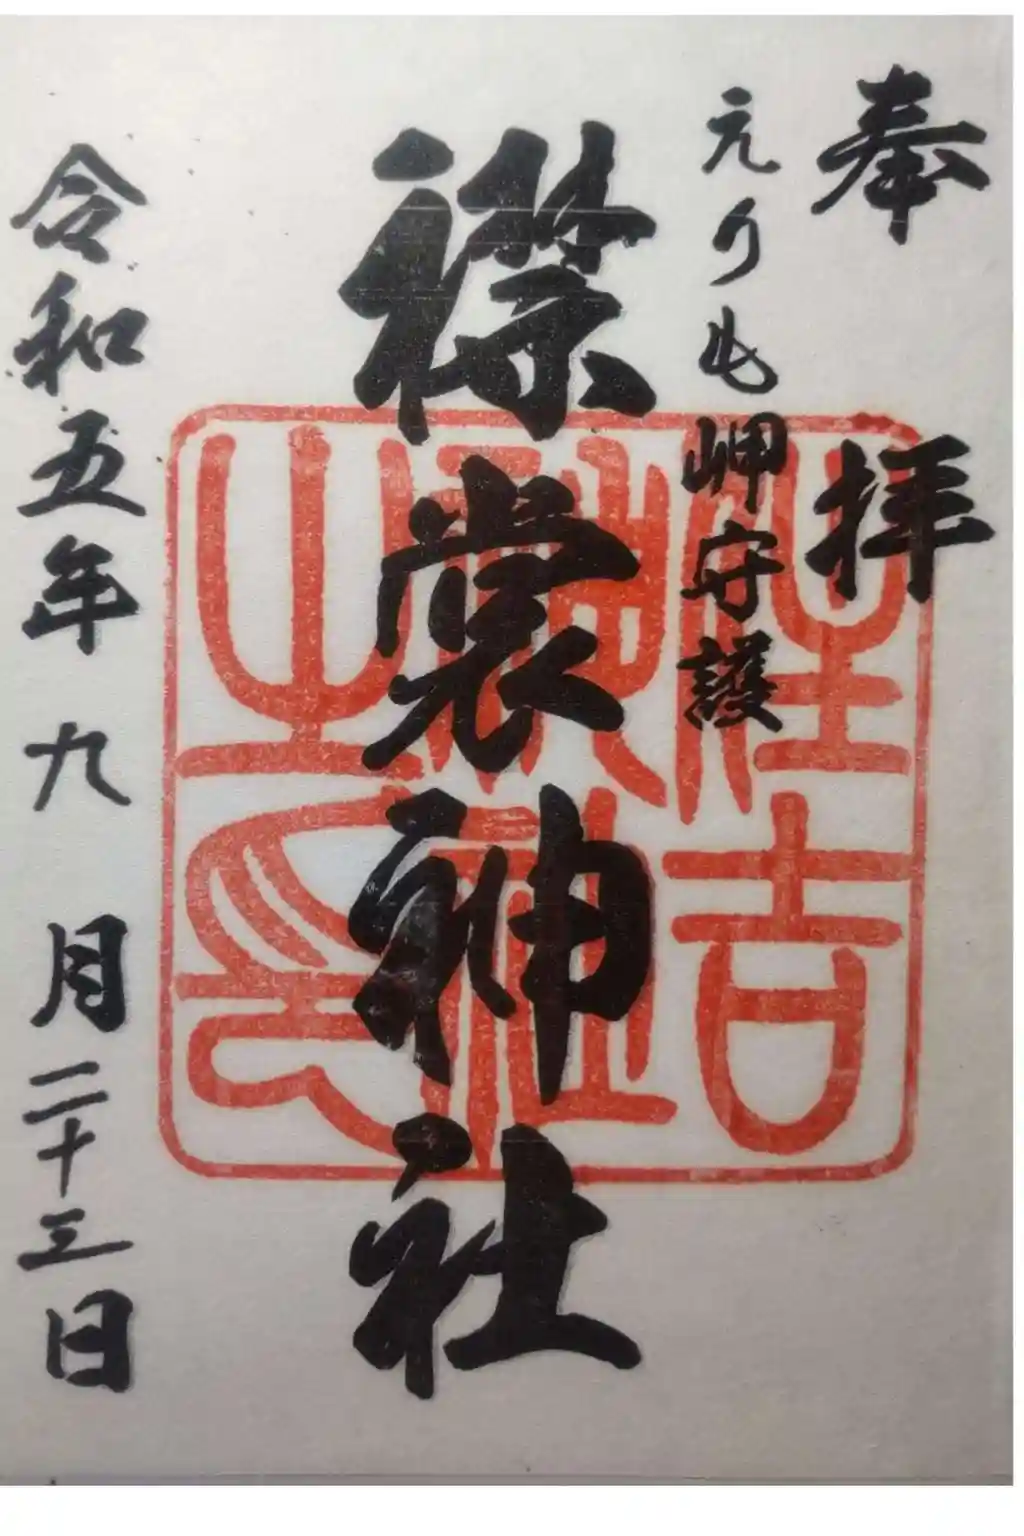 奉拝
えりも岬守護
襟裳神社
令和五年九月二十三日
住吉
神社
之印